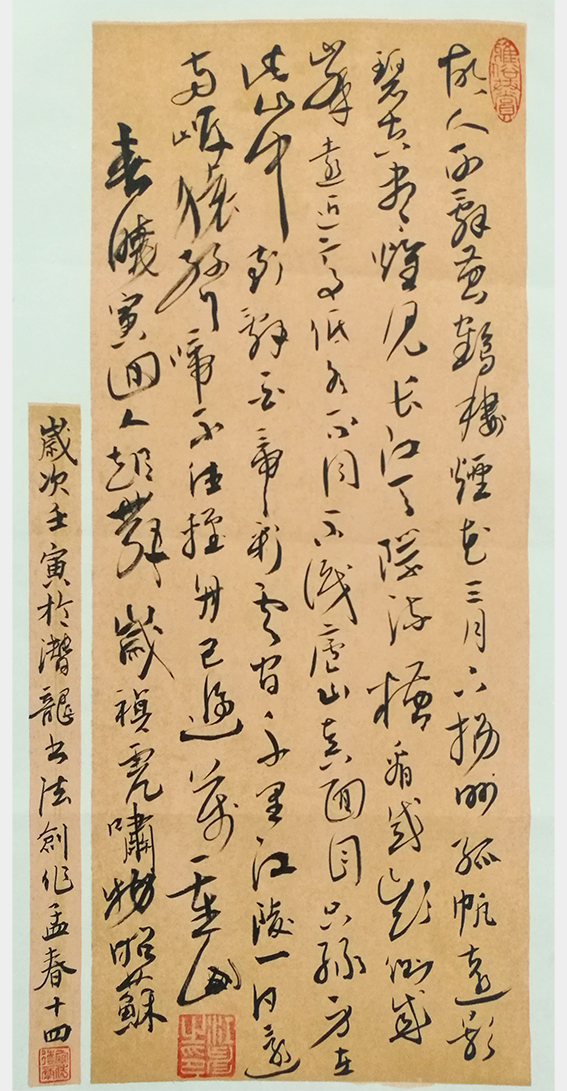 雅俗共賞
故人西辭黃鶴樓煙花三月下揚州孤帆遠影
碧空盡唯見長江天際流橫看成嶺側成
峰遠近高低各不同不識廬山真面目只緣身在
此山中朝辭白帝彩雲間千里江陵一日還
兩岸猿聲啼不住輕舟已過萬重山
春曉寅回人起舞歲禎虎嘯物昭蘇
歲次壬寅於潛龍書法創作孟春十四